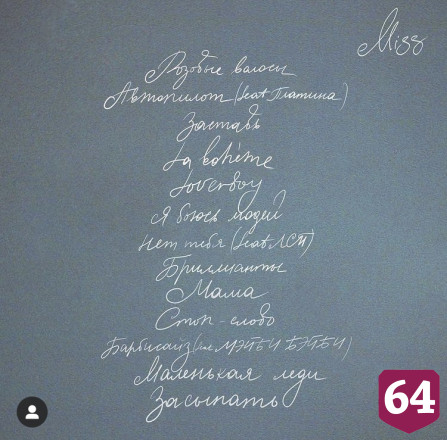 Miss
Розовые волосы
Автопилот (feat Платина)
Заставь
La bohème
Loverboy
Я боюсь людей
Нет тебя (feat ЛСП)
Бриллианты
Мама
Стоп-слово
Барбисайз (feat. МЭЙБИ БЭЙБИ)
Маленькая леди
Засыпать
64